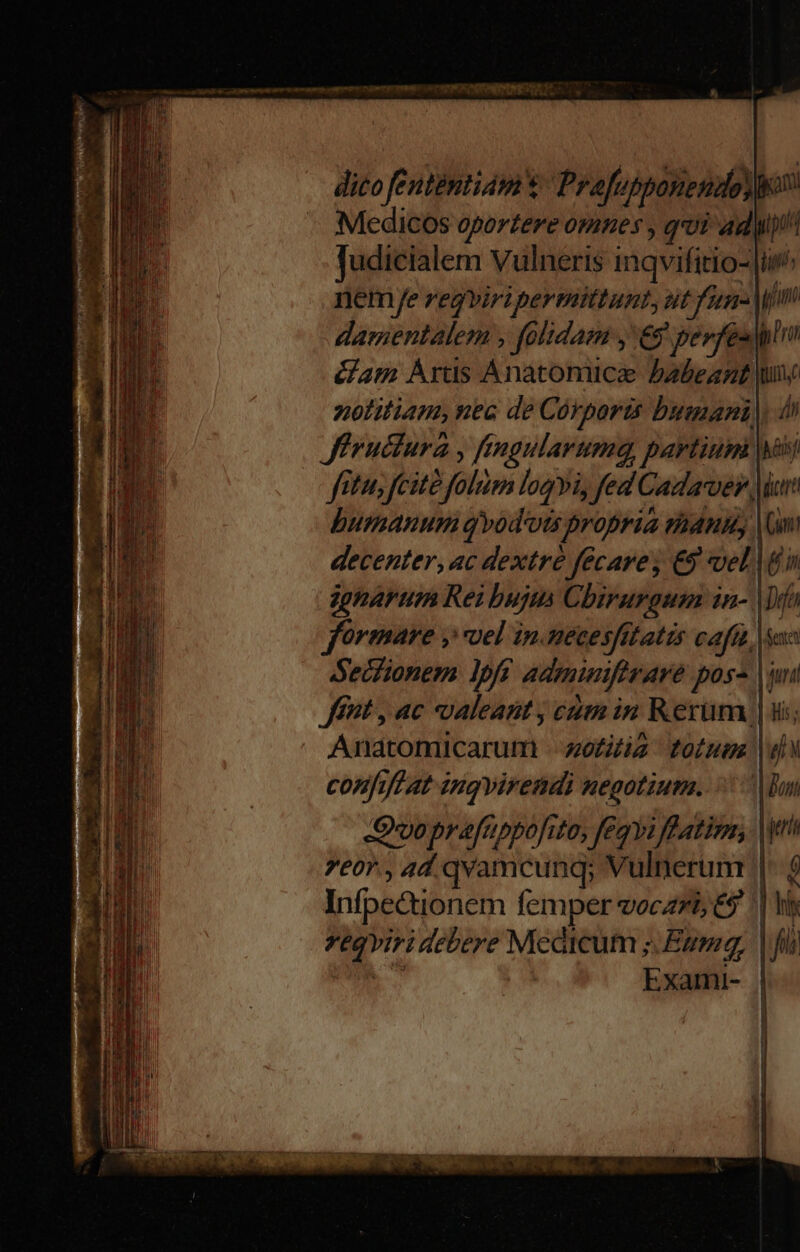 dico ſententiam: Præſupponendo,
Medicos oportere omnes, qvi ad
Judicialem Vulneris inqviſitio-
nem ſe reqviri permittunt, ut fun-
damentalem, ſolidam, & perfe-
ctam Artis Anatomicæ habeant
notitiam, nec de Corporis humani
ſtructurâ, ſingularumq; partium
ſitu, ſcitè ſolùm loqvi, ſed Cadaver
humanum qvodvis propriâ manu,
decenter, ac dextrè ſecare, & vel
ignarum Rei hujus Chirurgum in-
formare, vel in necesſitatis caſu,
Sectionem Ipſi adminiſtrare pos-
ſint, ac valeant, cùm in Rerum
Anatomicarum notitiâ totum
conſiſtat inqvirendi negotium.
Qvo præſuppoſito, ſeqvi ſtatim,
reor, ad qvamcunq; Vulnerum
Inſpectionem ſemper vocari, &
reqviri debere Medicum; Eumq;
Exami-